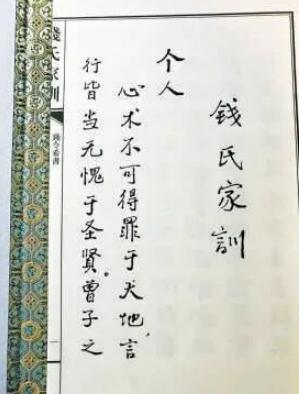 錢氏家訓
个人
心术不可得罪于天地，言
行皆当无愧于圣贤。曾子之
錢氏家訓
一